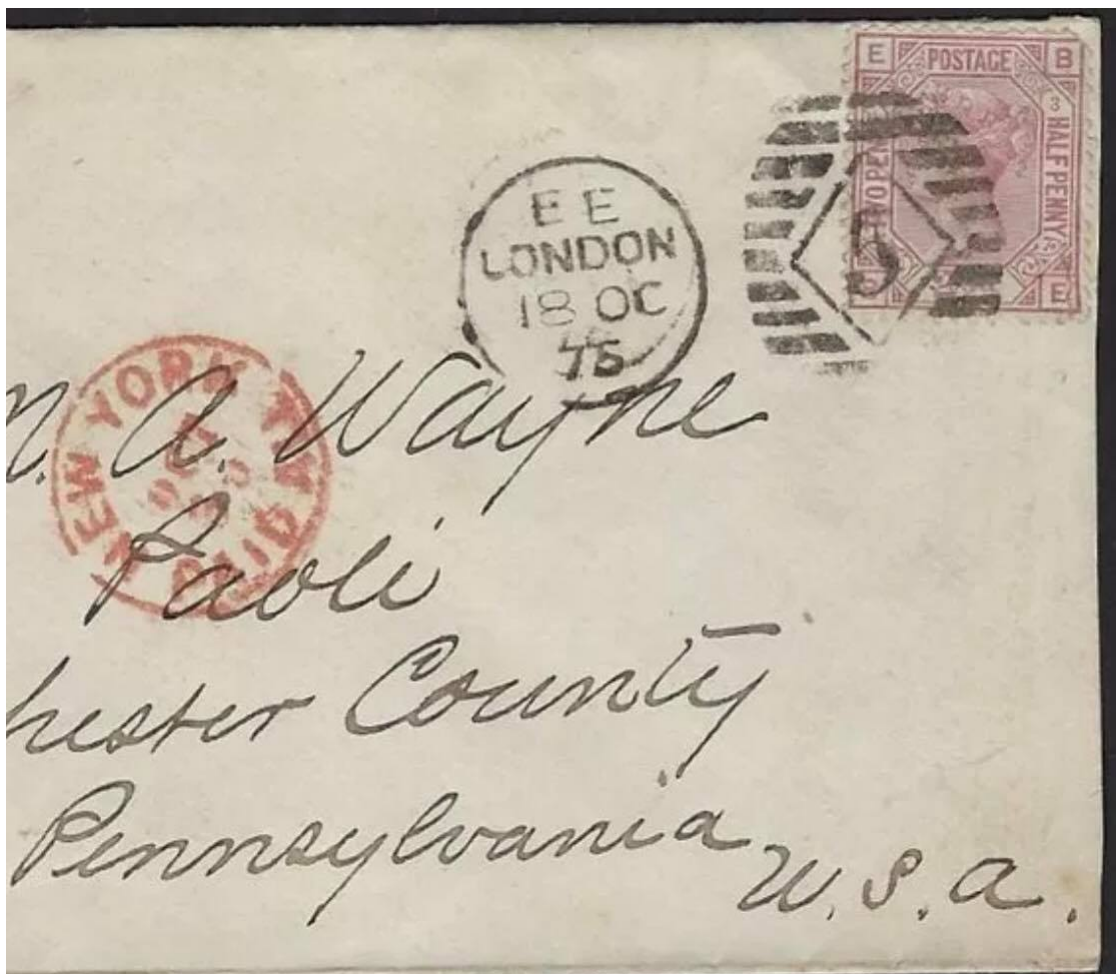 E POSTAGE B
3
TWO PE HALFPENNY
E
EE
LONDON
18 OC
76
NEW YORK
PAID
OCT
n. A. Wayne
Paoli
hester County
Pennsylvania
U.S.A.